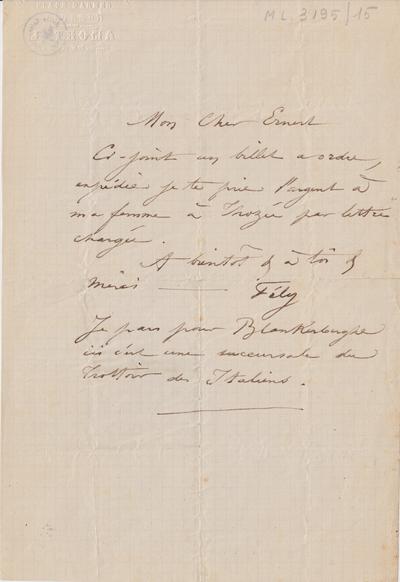 ML 3195/15
Mon Cher Ernest
Ci-joint un billet a ordre,
expédie je te prie l'argent à
ma femme à Thozée par lettre
chargée.
A bientôt & à toi &
merci
Fély
Je pars pour Blankerberghe
ici c'est une succursale du
Trottoir des Italiens.